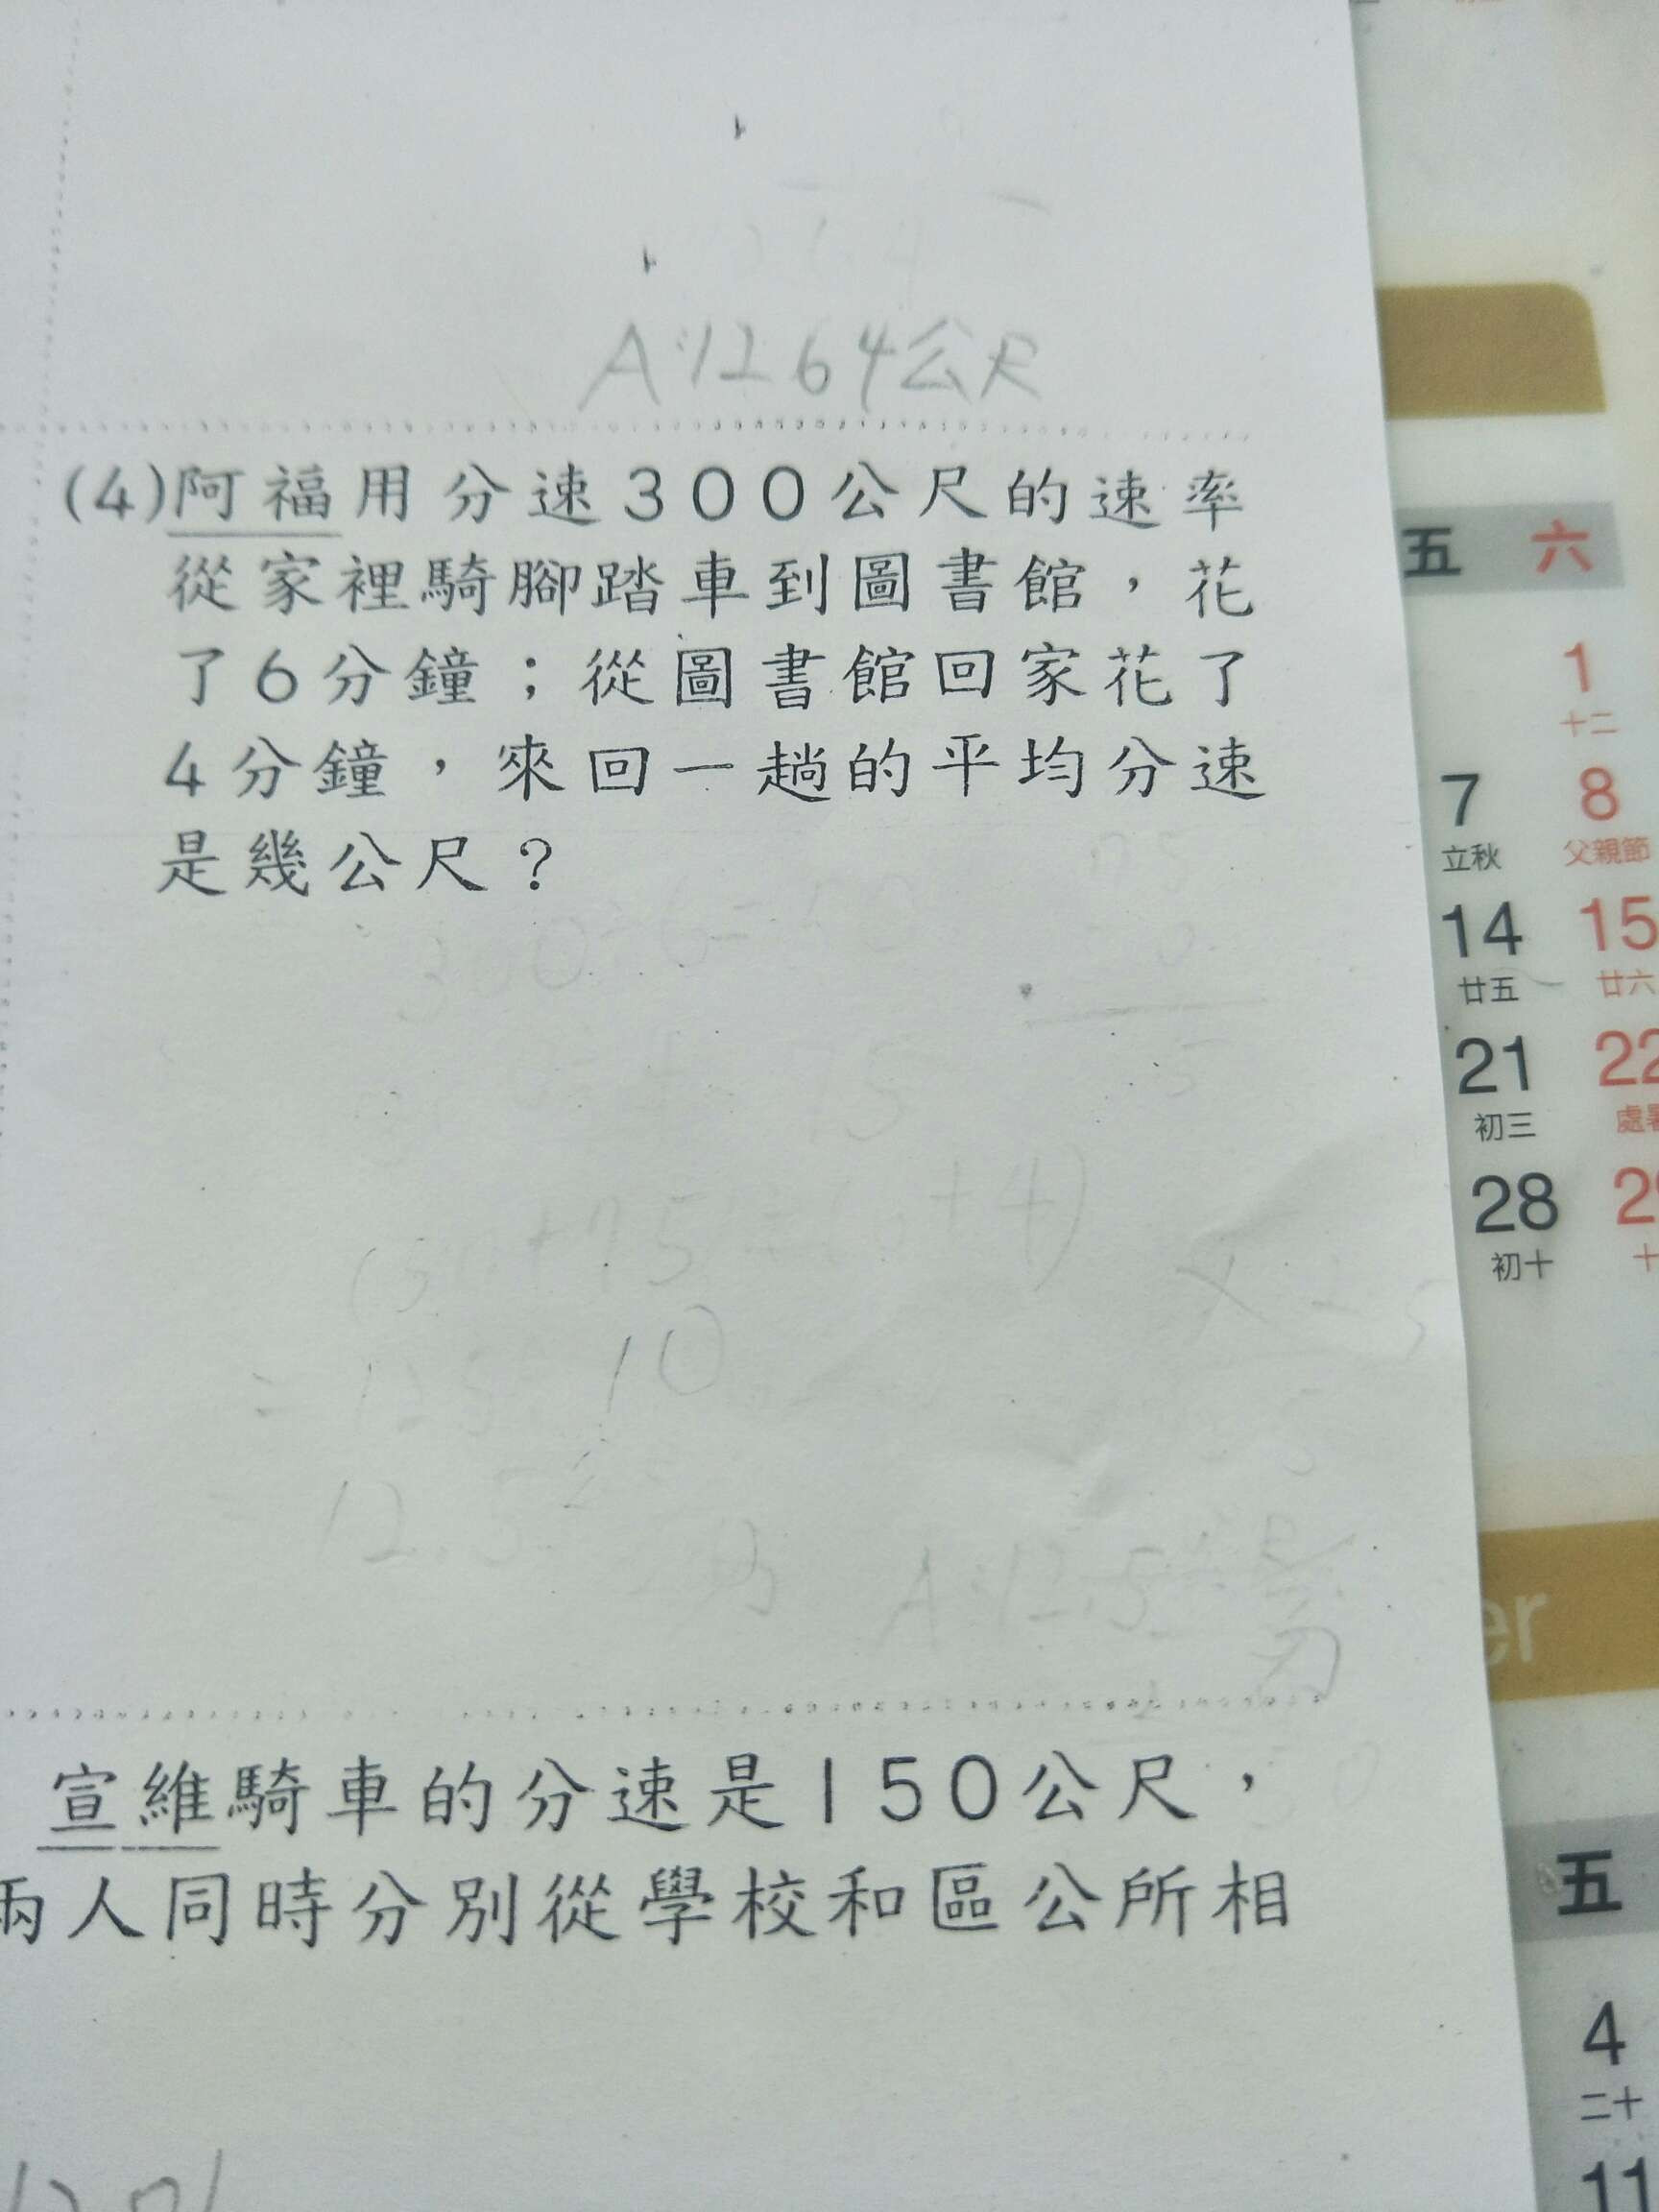 A:1264公尺
(4)阿福用分速300公尺的速率
從家裡騎腳踏車到圖書館，花
了6分鐘；從圖書館回家花了
4分鐘，來回一趟的平均分速
是幾公尺？
300÷6=50
75
+75
+4)
=125÷10
12.5
A:12.5
宣維騎車的分速是150公尺，
兩人同時分別從學校和區公所相
五 六
1
十二
7 8
立秋 父親節
14 15
廿五 廿六
21 22
初三
28
初十
er
五
4
二十
11